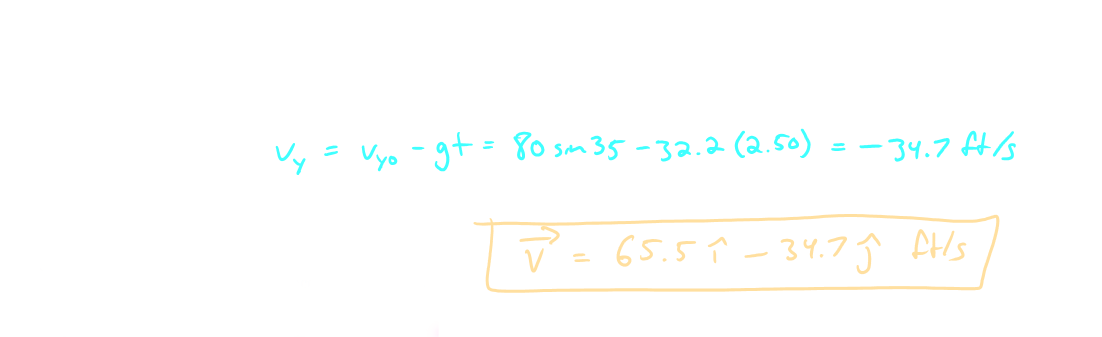 v_y = v_yo - gt = 80 sin 35 - 32.2 (2.50) = -34.7 ft/s
v⃗ = 65.5 î - 34.7 ĵ ft/s